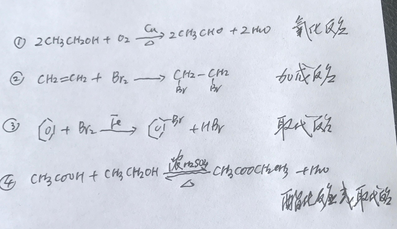 ① 2CH3CH2OH + O2 —Cu/△→ 2CH3CHO + 2H2O 氧化反应
② CH2=CH2 + Br2 → CH2-CH2 加成反应
Br Br
③ + Br2 —Fe→ Br + HBr 取代反应
④ CH3COOH + CH3CH2OH ⇌ 浓H2SO4 △ CH3COOCH2CH3 + H2O
酯化反应或取代反应